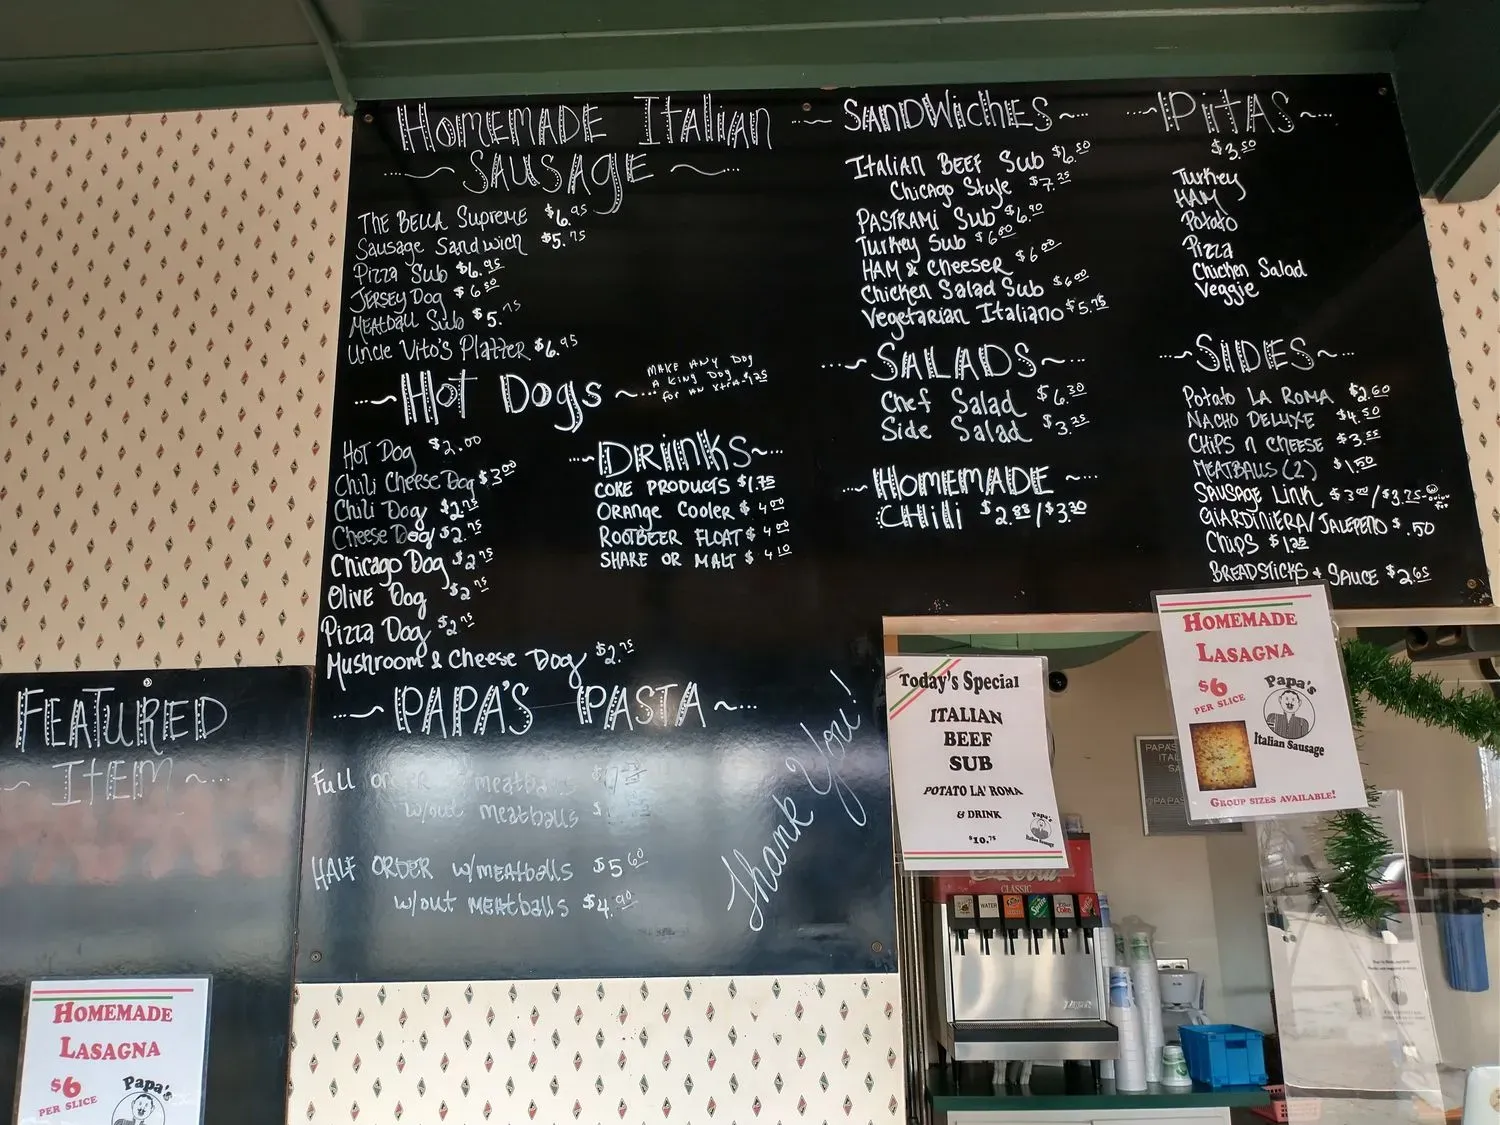 HOMEMADE ITALIAN
SAUSAGE
THE BELLA Supreme $6.95
Sausage Sandwich $5.75
Pizza Sub $6.95
JERSEY Dog $6.50
MEATball Sub $5.75
Uncle Vito's Platter $6.95
HOT Dogs
MAKE ANY DOG
A KING DOG
for an xtra
HOT Dog $2.00
Chili Cheese Dog $3.00
Chili Dog $2.75
Cheese Dog $2.75
Chicago Dog $2.75
Olive Dog $2.75
Pizza Dog $2.75
Mushroom & Cheese Dog $2.75
DRINKS
COKE PRODUCTS $1.75
ORANGE Cooler $4.00
ROOTBEER FLOAT $4.00
SHAKE OR MALT $4.10
PAPA'S PASTA
Full order w/ meatballs
w/out meatballs $
HALF ORDER w/meatballs $5.60
w/out MEAtballs $4.90
Thank You!
SANDWICHES
Italian BEEF Sub $6.50
Chicago Style $7.25
PASTRAMI Sub $6.90
Turkey Sub $6.00
HAM & CHEESER $6.00
Chicken Salad Sub $6.00
Vegetarian Italiano $5.75
SALADS
Chef Salad $6.30
Side Salad $3.25
HOMEMADE
CHili $2.88/$3.30
PitAS
$3.50
Turkey
HAM
Potato
Pizza
Chicken Salad
Veggie
SIDES
Potato LA ROMA $2.60
NACHO DELUXE $4.50
CHIPS n CHEESE $3.55
MEATBALLS (2) $1.50
SAUSAGE Link $3.00/$3.75
GIARDINIERA/JALEPENO $.50
Chips $1.25
BREADSTICKS + SAUCE $2.65
FEATURED
ITEM
HOMEMADE
LASAGNA
$6
PER SLICE
Papa's
Today's Special
ITALIAN
BEEF
SUB
POTATO LA' ROMA
& DRINK
$10.75
Papa's
Italian Sausage
HOMEMADE
LASAGNA
$6
PER SLICE
Papa's
Italian Sausage
GROUP SIZES AVAILABLE!
PAPA'S
ITAL
SA
Coca-Cola
CLASSIC
WATER
Sprite